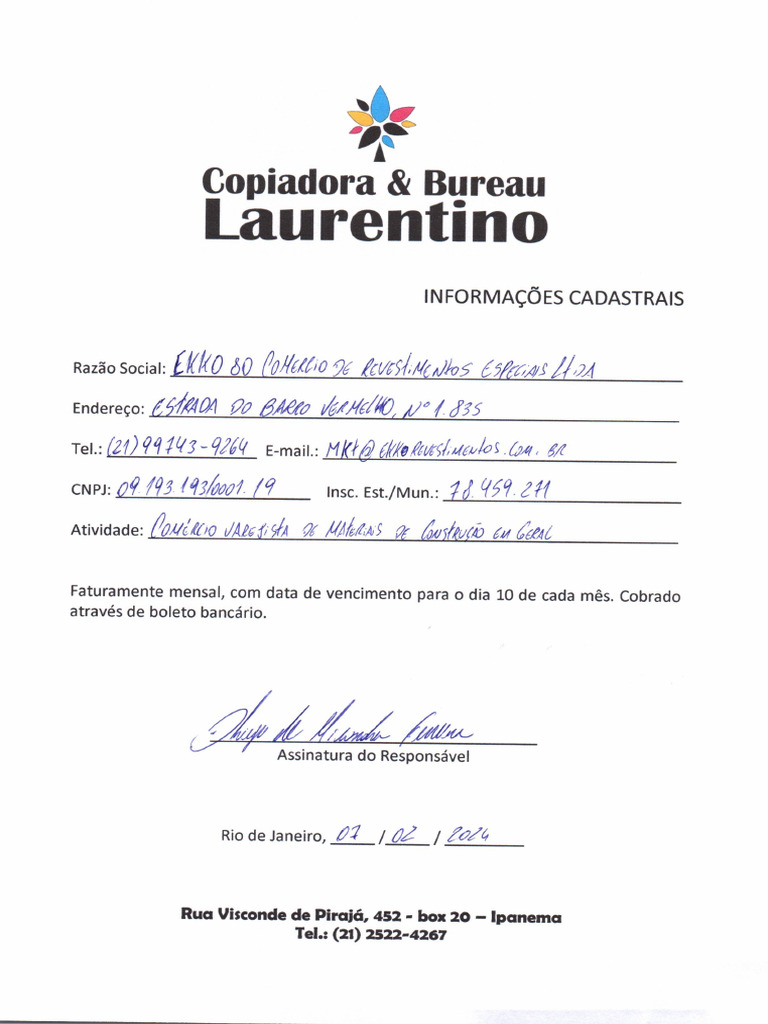 Copiadora & Bureau
Laurentino
INFORMAÇÕES CADASTRAIS
Razão Social: EKKO 80 COMERCIO DE REVESTIMENTOS ESPECIAIS LTDA
Endereço: ESTRADA DO BARRO VERMELHO, Nº 1.835
Tel.: (21) 99743-9264 E-mail.: MKT@EKKOREVESTIMENTOS.COM.BR
CNPJ: 09.193.193/0001.19 Insc. Est./Mun.: 78.459.271
Atividade: COMÉRCIO VAREJISTA DE MATERIAIS DE CONSTRUÇÃO EM GERAL
Faturamente mensal, com data de vencimento para o dia 10 de cada mês. Cobrado
através de boleto bancário.
de
Assinatura do Responsável
Rio de Janeiro, 07 / 02 / 2024
Rua Visconde de Pirajá, 452 - box 20 – Ipanema
Tel.: (21) 2522-4267